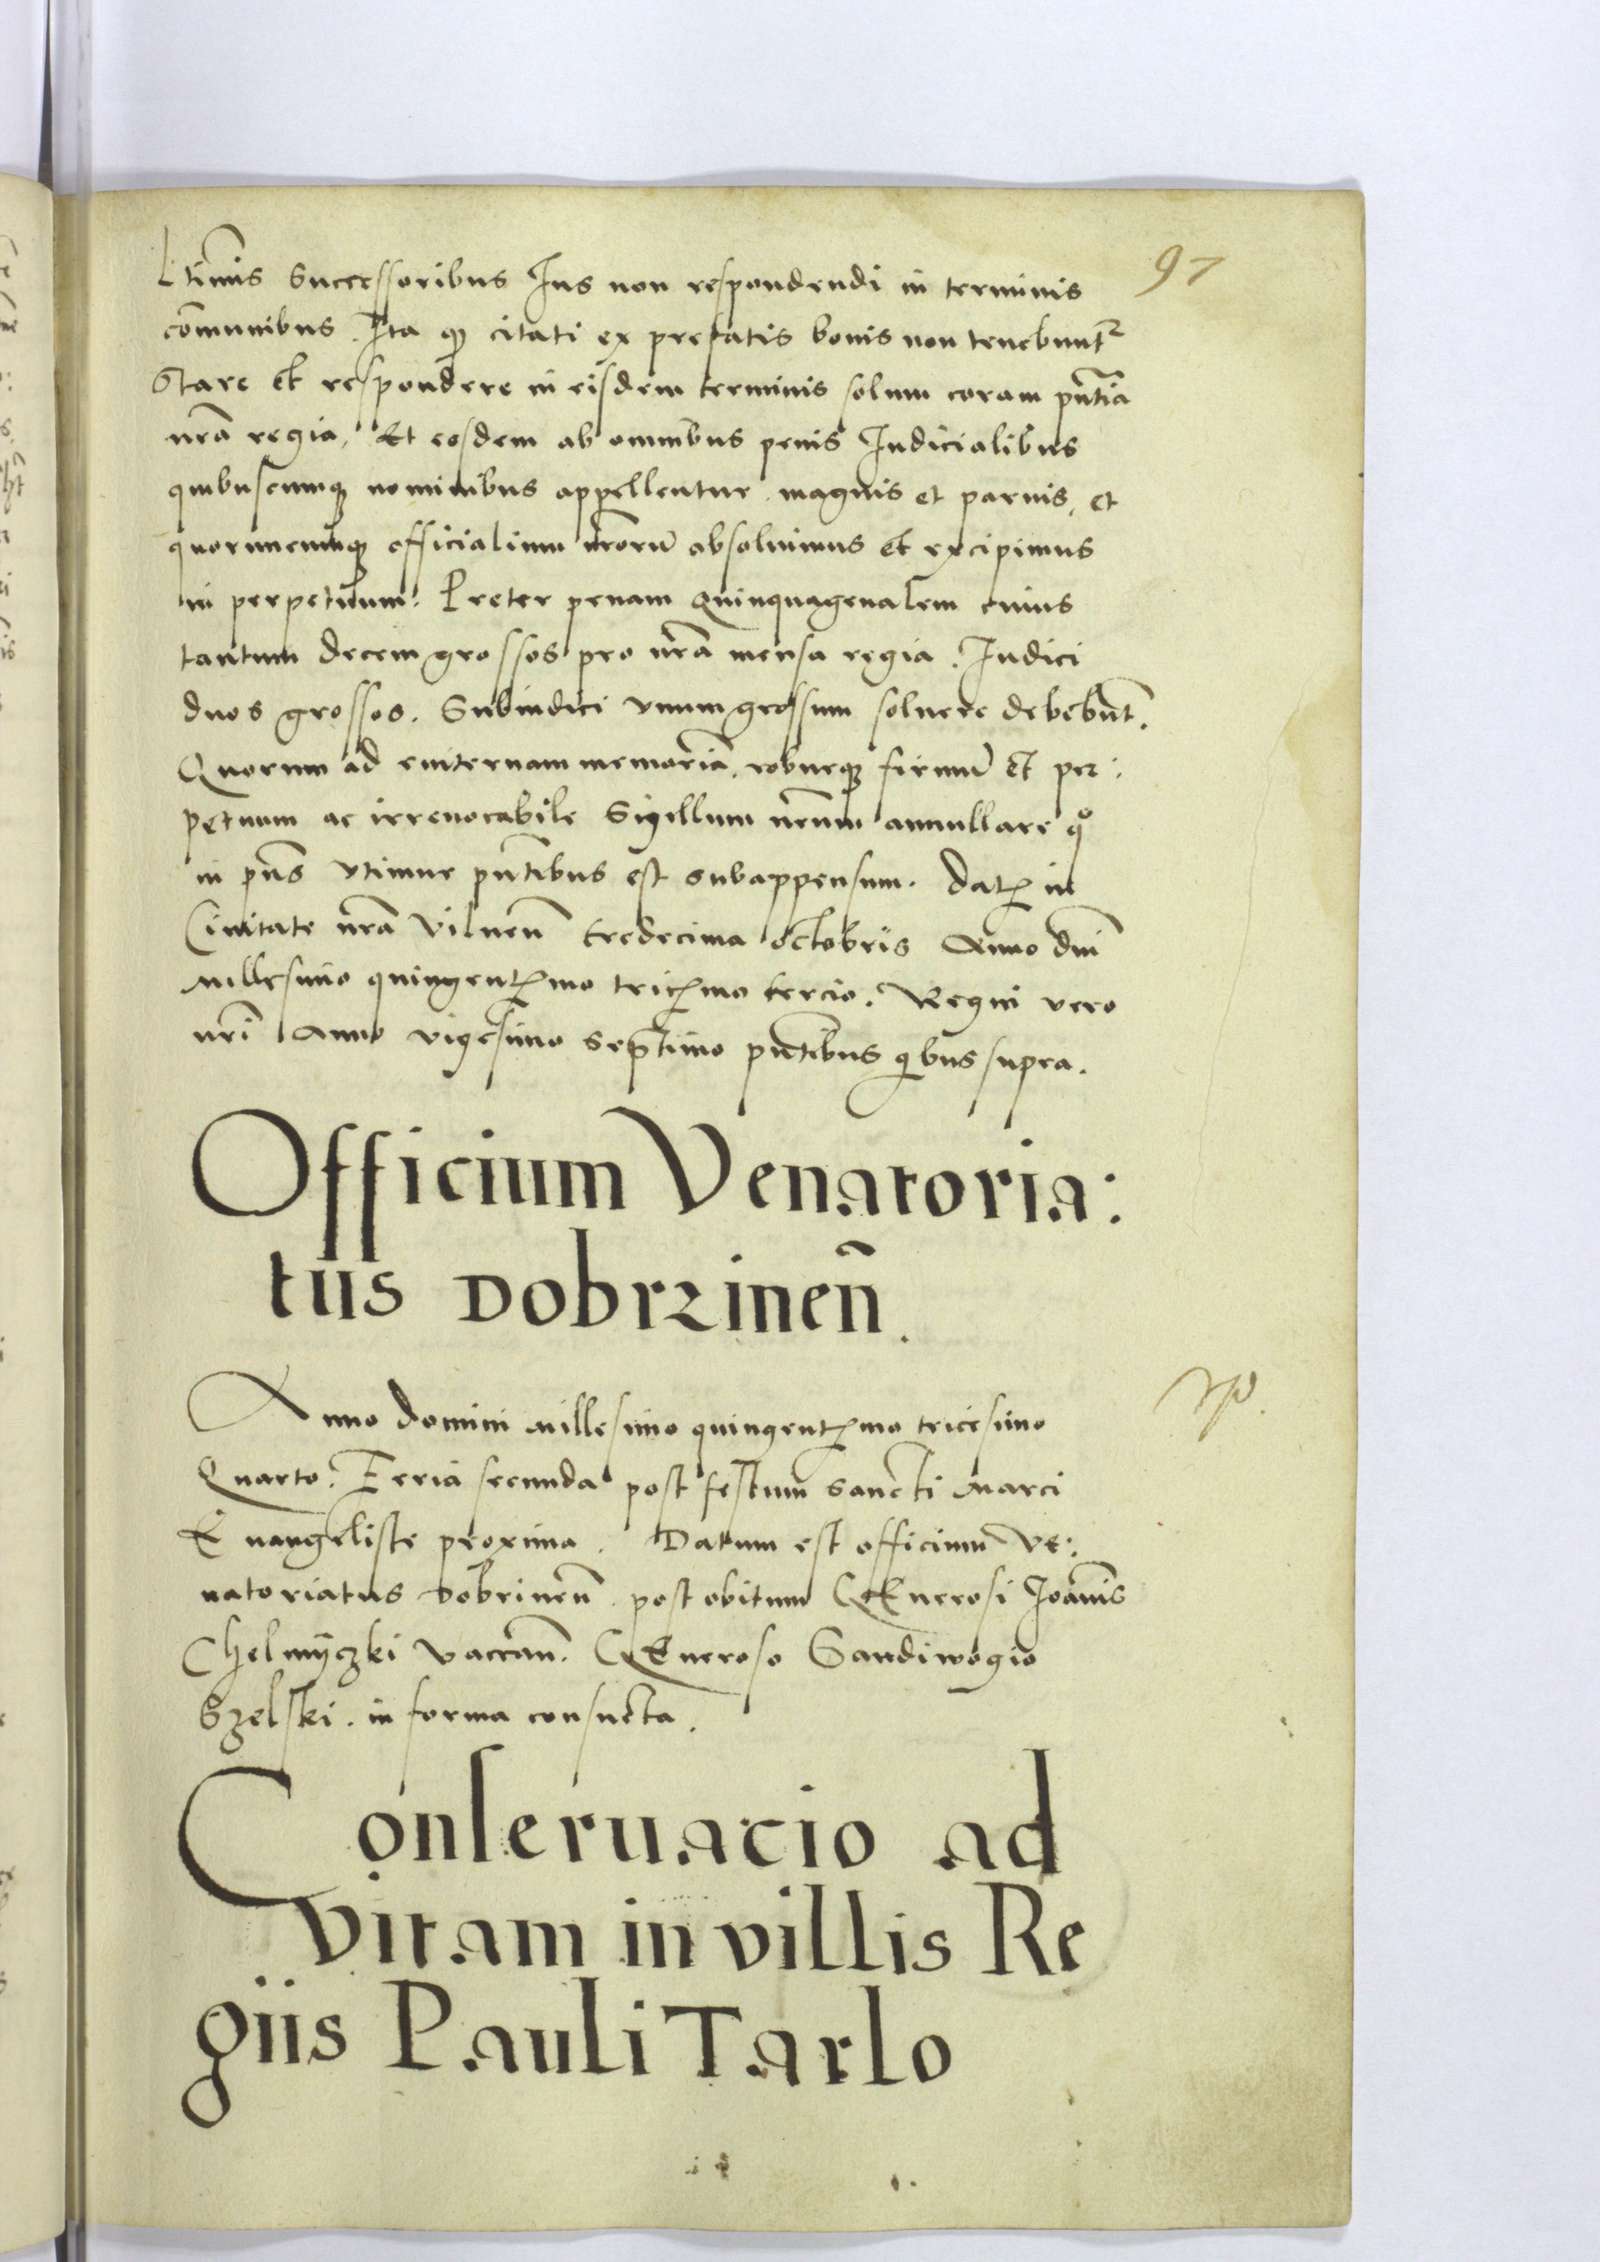 97
Ltimis Successoribus Ius non respondendi in terminis
cõmunibus. Ita q citati ex prefatis bonis non tenebunt2
Stare et respondere in eisdem terminis solum coram pñtia
nrã regia. Et eosdem ab omnibus penis Iudicialibus
quibuscumq nominibus appellentur. magnis et paruis, et
quorumcumq officialium nrorũ absoluimus et excipimus
in perpetuum. Preter penam Quinquagenalem cuius
tantum decem grossos pro nrã mensa regia. Iudici
duos grossos. Subiudici vnum grossum soluere debebũt.
Quorum ad euiternam memoriã, roburq firmũ et per:
petuum ac irreuocabile Sigillum nrm̃ annullare qo
in pñs vtimur pñtibus est subappensum. Dat in
Ciuitate nrã Vilneñ tredecima Octobris Anno dñi
Millesimo quingentmo tricmo tercio. Regni vero
nrĩ Anno vigesimo septimo pñtibus qbus supra.
Officium Venatoria:
tus Dobrzineñ.
Anno domini Millesimo quingentmo tricesimo
Quarto. Feria secunda post festum sancti Marci
Euangeliste proxima. Datum est officium Ve:
natoriatus Dobrineñ post obitum GEnerosi Ioãnis
Chelmyczki vaccañ. GEneroso Sandiwogio
Szelski. in forma consueta.
Conseruacio ad
vitam in villis Re
giis Pauli Tarlo